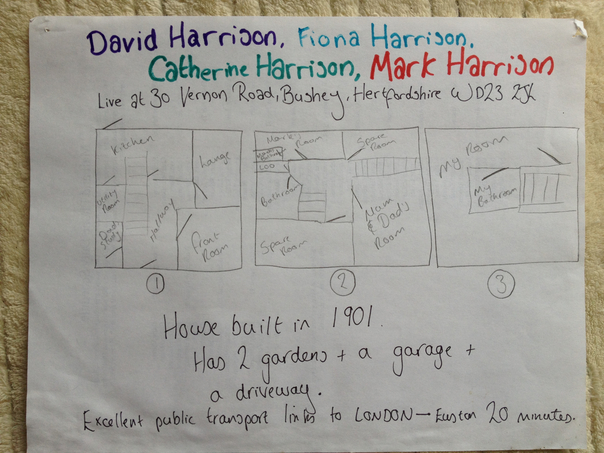 David Harrison, Fiona Harrison,
Catherine Harrison, Mark Harrison
Live at 30 Vernon Road, Bushey, Hertfordshire WD23 2JL
Kitchen
Lounge
Utility Room
Dad's Study
Hallway
Front Room
Mark's Room
Spare Room
LOO
Bathroom
Mum & Dad's Room
Spare Room
My Room
My Bathroom
1
2
3
House built in 1901.
Has 2 gardens + a garage +
a driveway.
Excellent public transport links to LONDON — Euston 20 minutes.